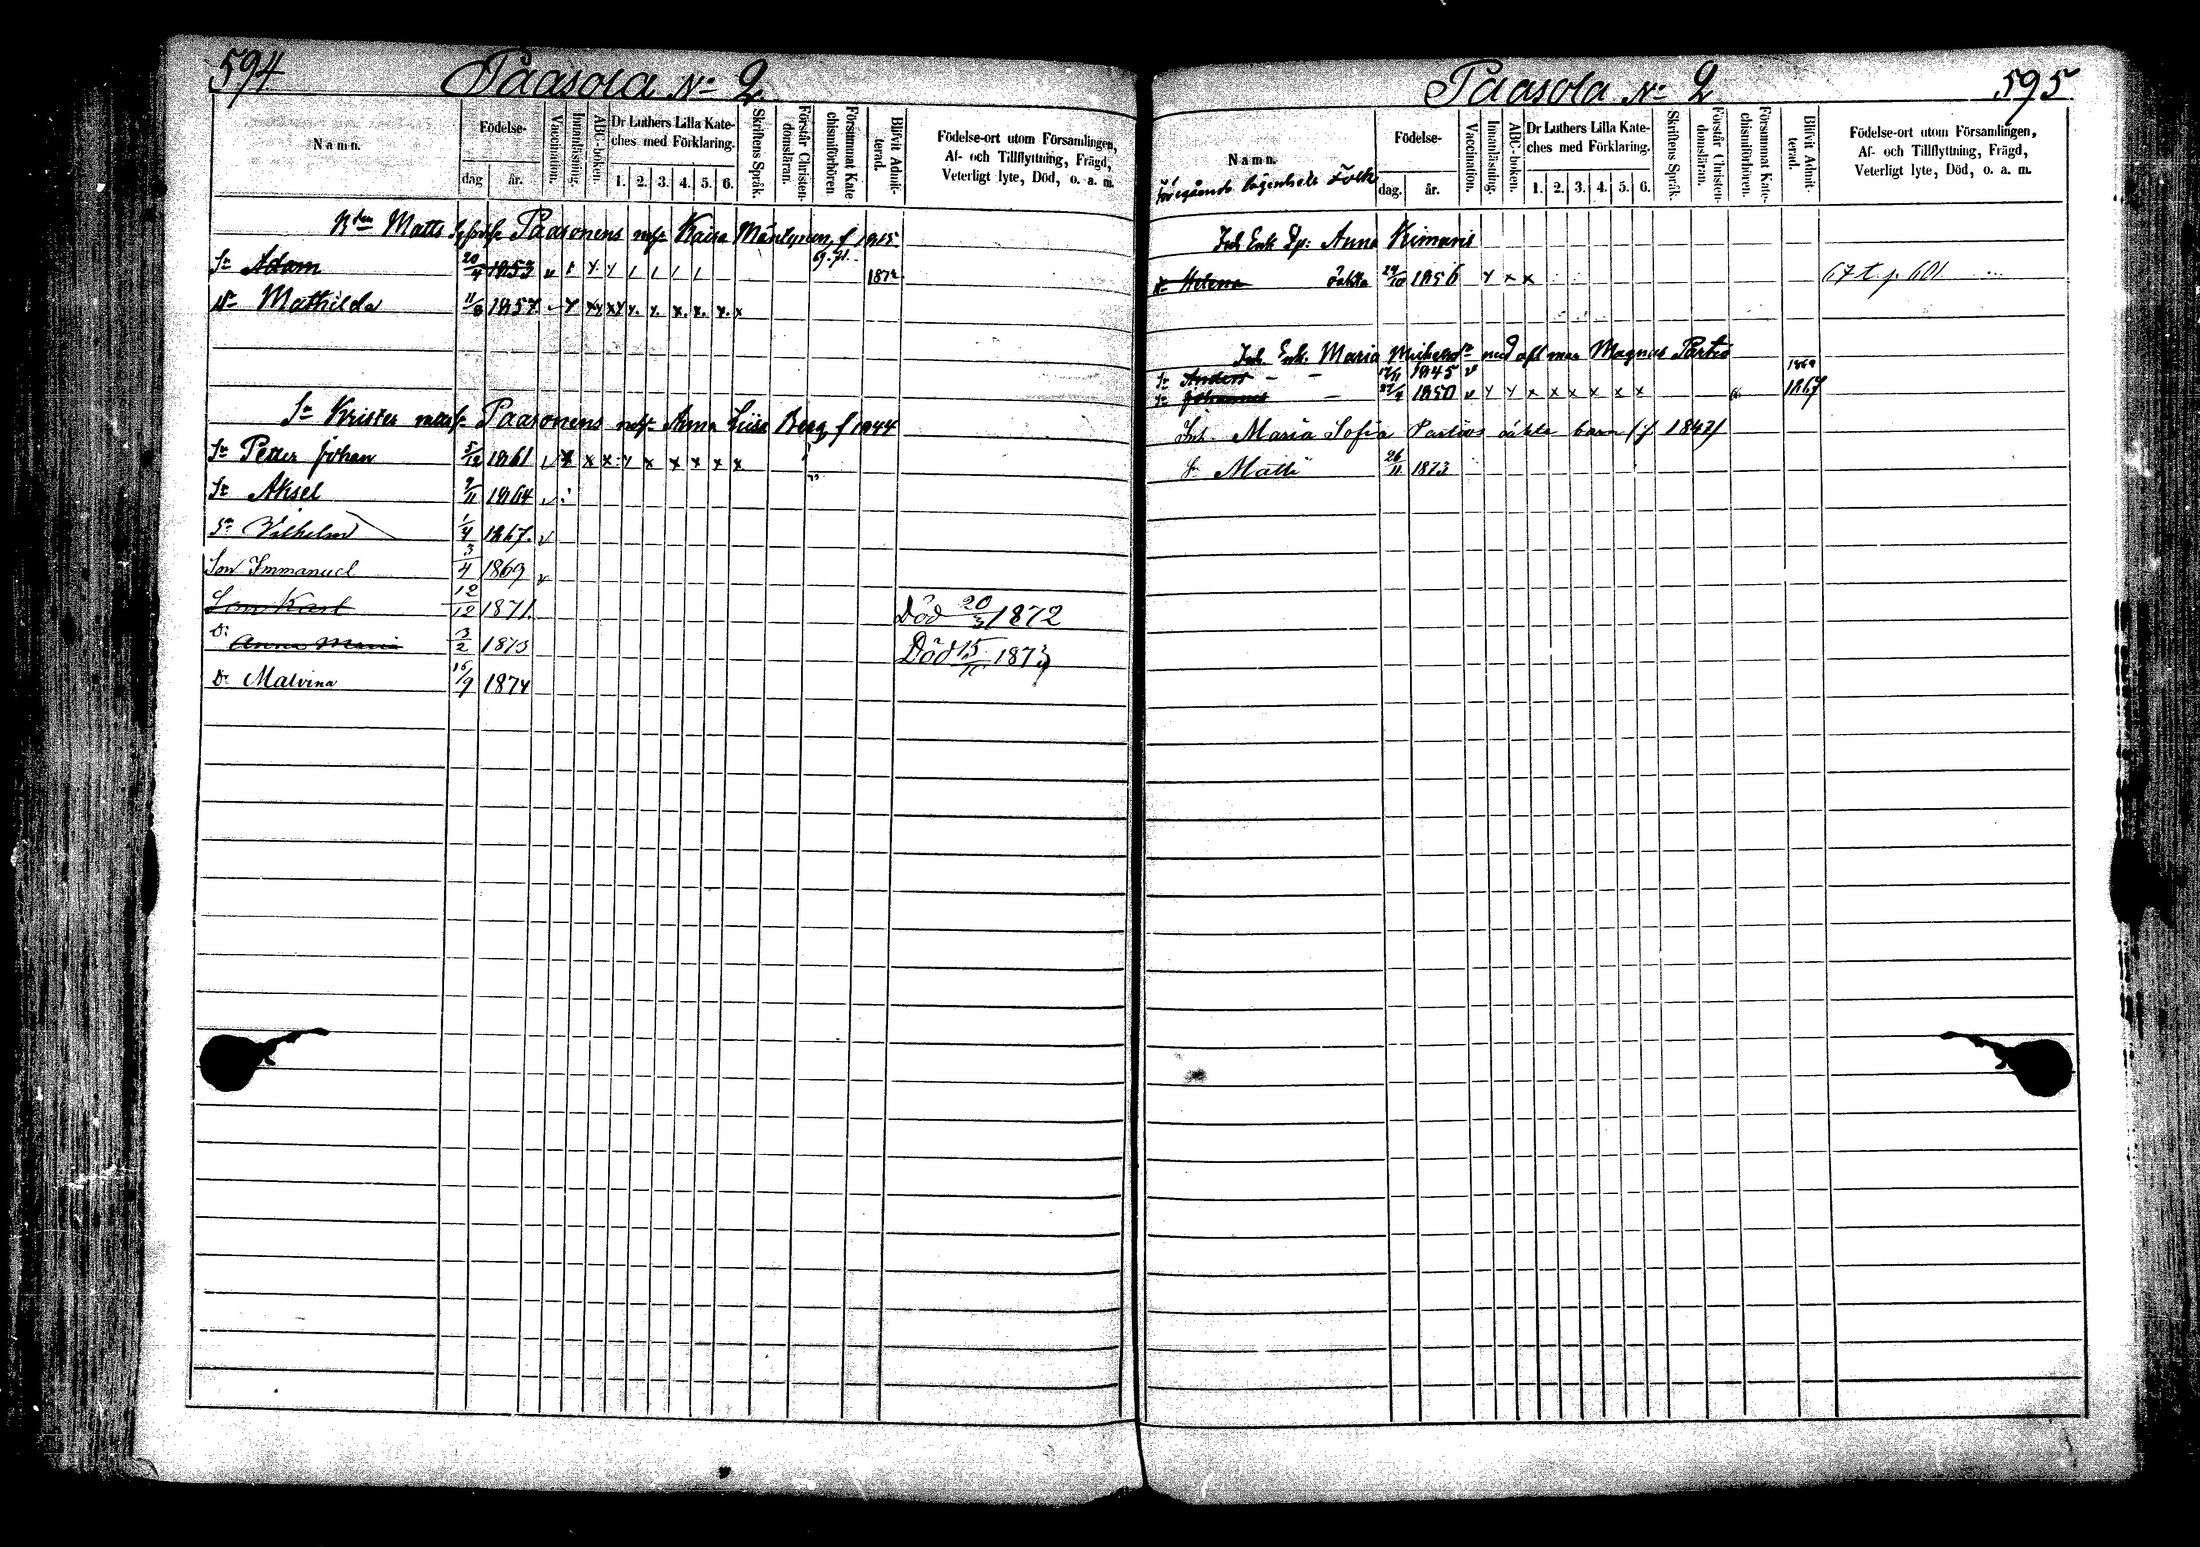 594
Paasola No 2
Namn.
Födelse-
dag
år.
Vaccination.
Innanläsning.
ABC-boken.
Dr Luthers Lilla Kate-
ches med Förklaring.
1. 2. 3. 4. 5. 6.
Skriftens Språk.
Förstår Christen-
domsläran.
Försummat Kate
chismiförhören
Blifvit Admit-
terad.
Födelse-ort utom Församlingen,
Af- och Tillflyttning, Frägd,
Veterligt lyte, Död, o. a. m.
Matts Paasonens Kaisa Mäntynen f 1815
69. 71.
Sn Adam 20/4 1853 1872
Dr Mathilda 11/8 1857
Sn Krister Paasonens Anna Liisa Berg f 1844
Sn Petter Johan 5/12 1861
Sn Aksel 9/11 1864
Sn Vilhelm 1/4 1867.
Son Immanuel 3/4 1869
Son Karl 12/12 1871. Död 20/3 1872
Dr Anna Maria 3/2 1873 Död 15/10 1873
Dr Malvina 16/9 1874
Paasola No 2
595
Namn.
föregående lägenhets Folk
Födelse-
dag.
år.
Vaccination.
Innanläsning.
ABC-boken.
Dr Luthers Lilla Kate-
ches med Förklaring.
1. 2. 3. 4. 5. 6.
Skriftens Språk.
Förstår Christen-
domsläran.
Försummat Kate-
chismiförhören.
Blifvit Admit-
terad.
Födelse-ort utom Församlingen,
Af- och Tillflyttning, Frägd,
Veterligt lyte, Död, o. a. m.
Inh Enk Dr: Anna Kimaris
Dr Helena oäkta 24/10 1856 67 t. p 601
Inh. Enk. Maria Michelsdr med afl man Magnus Partio
Sn Anders 17/11 1845 1869
Sn Johannes 27/9 1850 1867
Inh. Maria Sofia Partios oäkta barn (f 1847)
S. Matti 26/11 1873